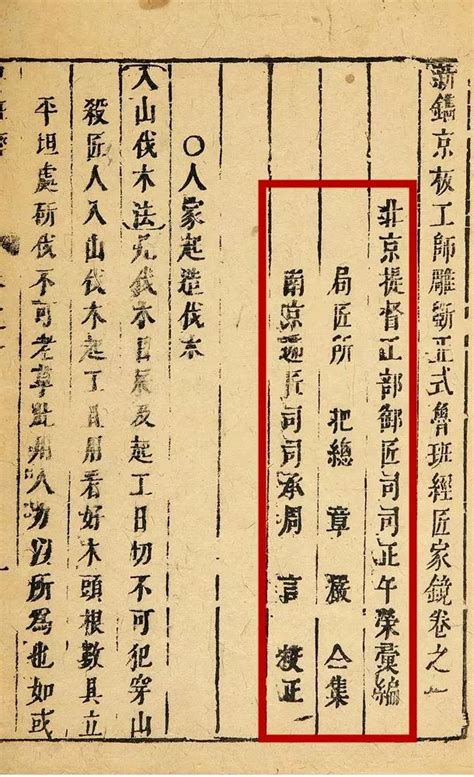 新鐫京板工師雕斵正式魯班經匠家鏡卷之一
北京提督工部御匠司司正午榮彙編
局匠所把總章嚴仝集
南京遞匠司司承周言校正
〇人家起造伐木
入山伐木法凡伐木日辰及起工日切不可犯穿山
殺匠人入山伐木起工且用看好木頭根數具立
平坦處斫伐不可老草此用人力以所為也如或